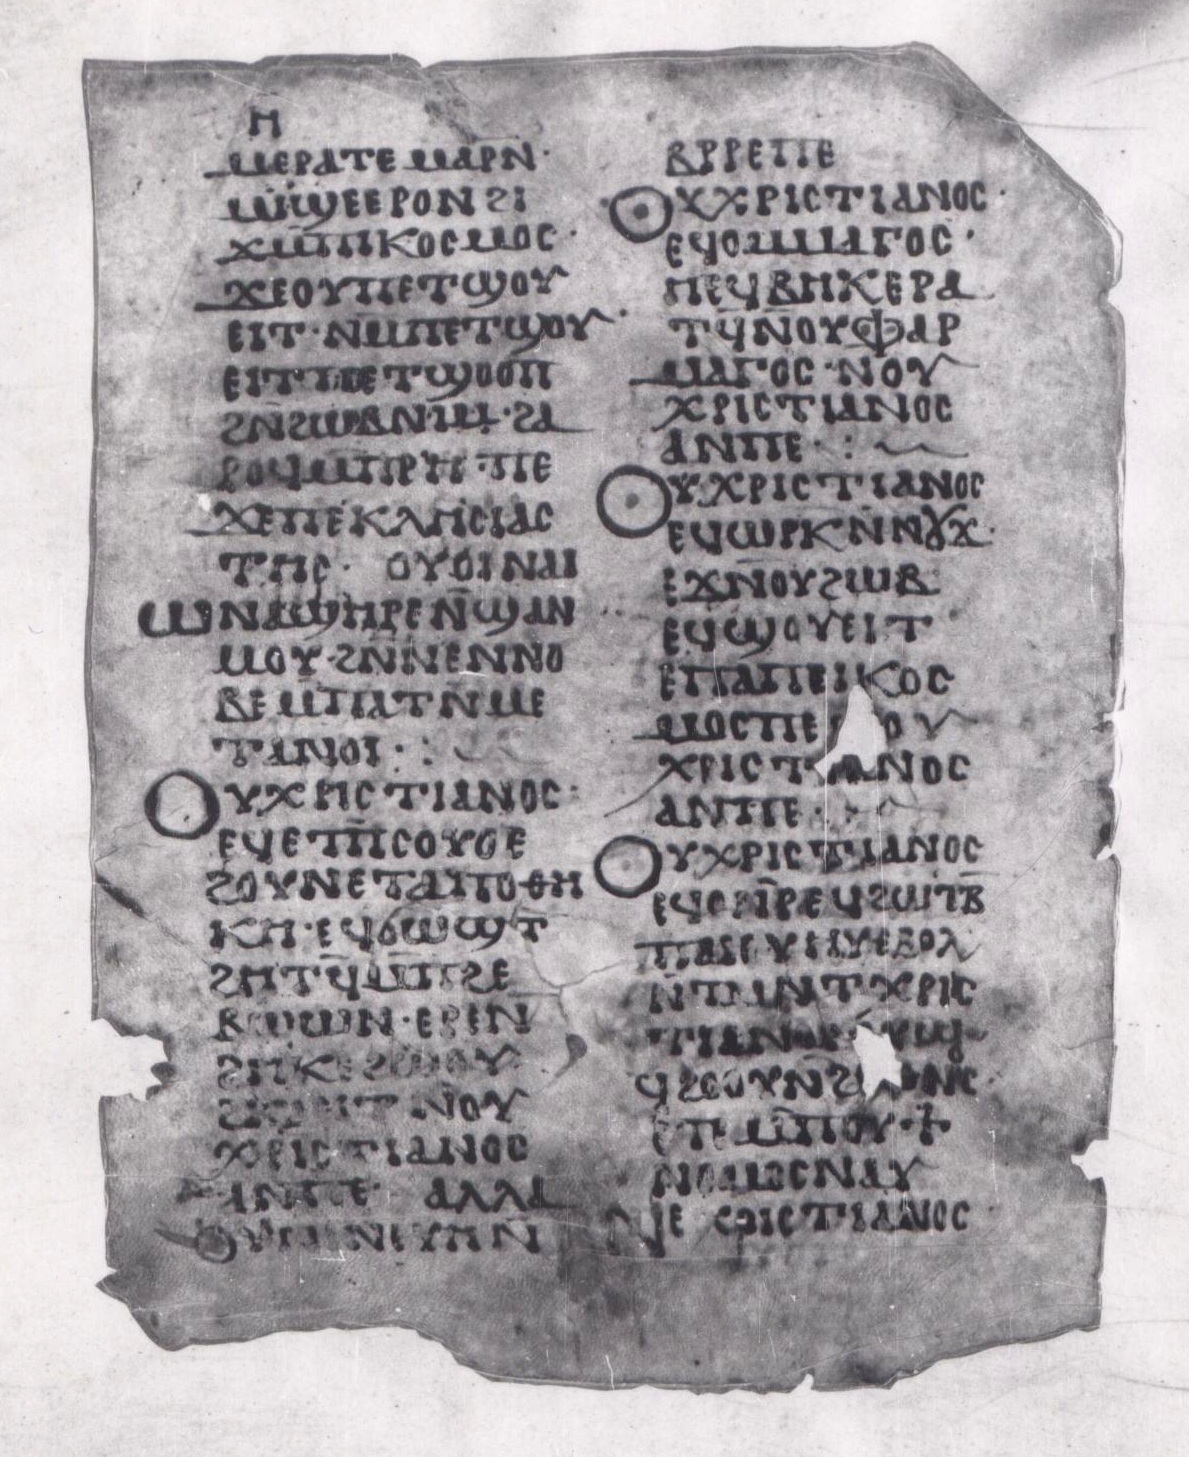 ⲏ
ⲙⲉⲣⲁⲧⲉ ⲙⲁⲣⲛ
ⲙⲓϣⲉ ⲉⲣⲟⲛ ϩⲓ
ϫⲙⲡⲓⲕⲟⲥⲙⲟⲥ·
ϫⲉⲟⲩⲡⲉⲧϣⲟⲩ
ⲉⲓⲧ·ⲛⲙⲡⲉⲧϣⲟⲩ
ⲉⲓⲧⲡⲉⲧϣⲟⲟⲡ
ϩⲛϩⲱⲃⲛⲓⲙ·ϩⲁ
ⲣⲟϥⲙⲡⲣⲏ·ⲡⲉ
ϫⲉⲡⲉⲕⲗⲏⲥⲓⲁⲥ
ⲧⲏⲥ· ⲟⲩⲟⲓⲛⲁⲓ
ⲱⲛⲁϣⲏⲣⲉⲛϣⲁⲛ
ⲙⲟⲩ·ϩⲛⲛⲉⲛⲛⲟ
ⲃⲉⲙⲡⲁⲧⲛⲙⲉ
ⲧⲁⲛⲟⲓ·:
ⲟⲩⲭⲣⲓⲥⲧⲓⲁⲛⲟⲥ·
ⲉϥⲉⲧⲡⲥⲟⲩⲟⲉ
ϩⲟⲩⲛⲉⲧⲁⲡⲟⲑⲏ
ⲕⲏ·ⲉϥϭⲱϣⲧ
ϩⲏⲧϥⲙⲡϩⲉ
ⲃⲱⲱⲛ·ⲉⲣⲉⲛ
ϩⲏⲕⲉ
ⲛⲟⲩ
ⲭⲣⲓⲥⲧⲓⲁⲛⲟⲥ
ⲁⲛⲡⲉ· ⲁⲗⲗⲁ
ⲃⲣⲣⲉⲡⲉ
ⲟⲩⲭⲣⲓⲥⲧⲓⲁⲛⲟⲥ·
ⲉϥⲟⲙⲙⲁⲅⲟⲥ·
ⲡⲉϥⲃⲏⲕⲉⲣⲁ
ⲧϥⲛⲟⲩⲫⲁⲣ
ⲙⲁⲅⲟⲥ·ⲛⲟⲩ
ⲭⲣⲓⲥⲧⲓⲁⲛⲟⲥ
ⲁⲛⲡⲉ·:
ⲟⲩⲭⲣⲓⲥⲧⲓⲁⲛⲟⲥ
ⲉϥⲱⲣⲕⲛⲛⲟⲩϫ·
ⲉϫⲛⲟⲩϩⲱⲃ
ⲉϥϣⲟⲩⲉⲓⲧ·
ⲉⲡⲁⲡⲉⲓⲕⲟⲥ
ⲙⲟⲥⲡⲉ ⲛⲟⲩ
ⲭⲣⲓⲥⲧⲓⲁⲛⲟⲥ
ⲁⲛⲡⲉ·:
ⲟⲩⲭⲣⲓⲥⲧⲓⲁⲛⲟⲥ
ⲉϥⲟⲛⲣⲉϥϩⲱⲧⲃ
ⲉⲃⲟⲗ
ⲛⲧⲙⲛⲧⲭⲣⲓⲥ
ⲧⲓⲁⲛⲟⲥ
ϥϩⲟⲟⲩⲛϩⲟⲩⲟ
ⲉⲛⲉⲙⲡⲟⲩ·ϯ
ⲛⲟⲙⲟⲥⲛⲁⲩ
ⲭⲣⲓⲥⲧⲓⲁⲛⲟⲥ·